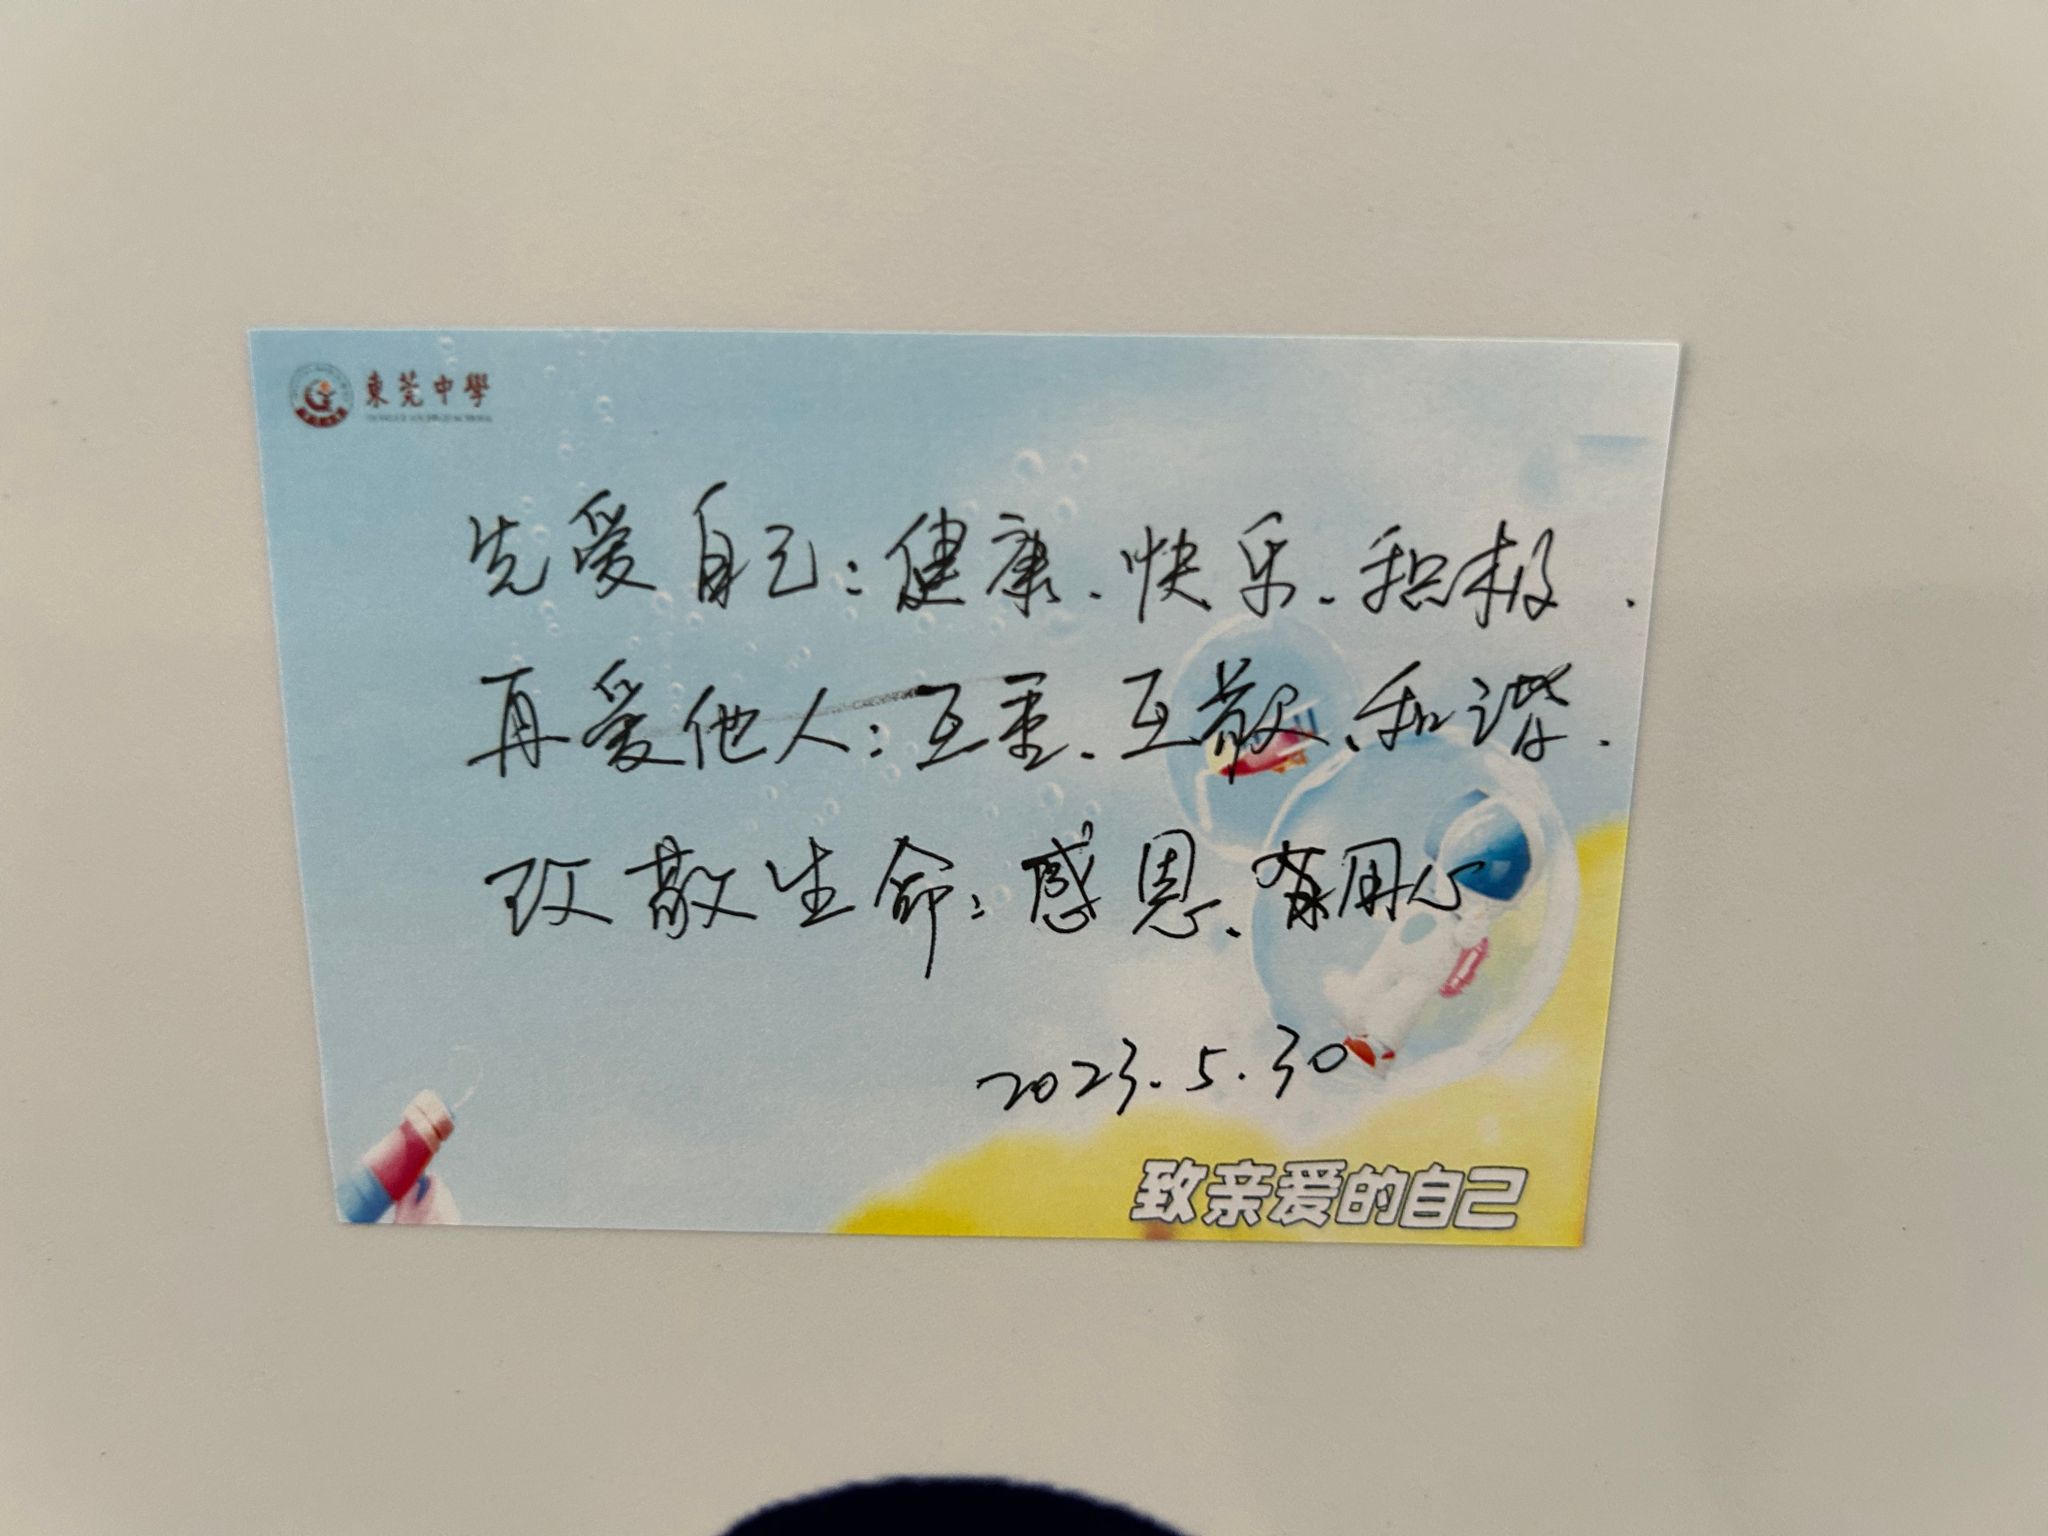 東莞中學
先爱自己：健康、快乐、积极.
再爱他人：互重、互敬、和谐.
致敬生命：感恩、用心
2023.5.30
致亲爱的自己